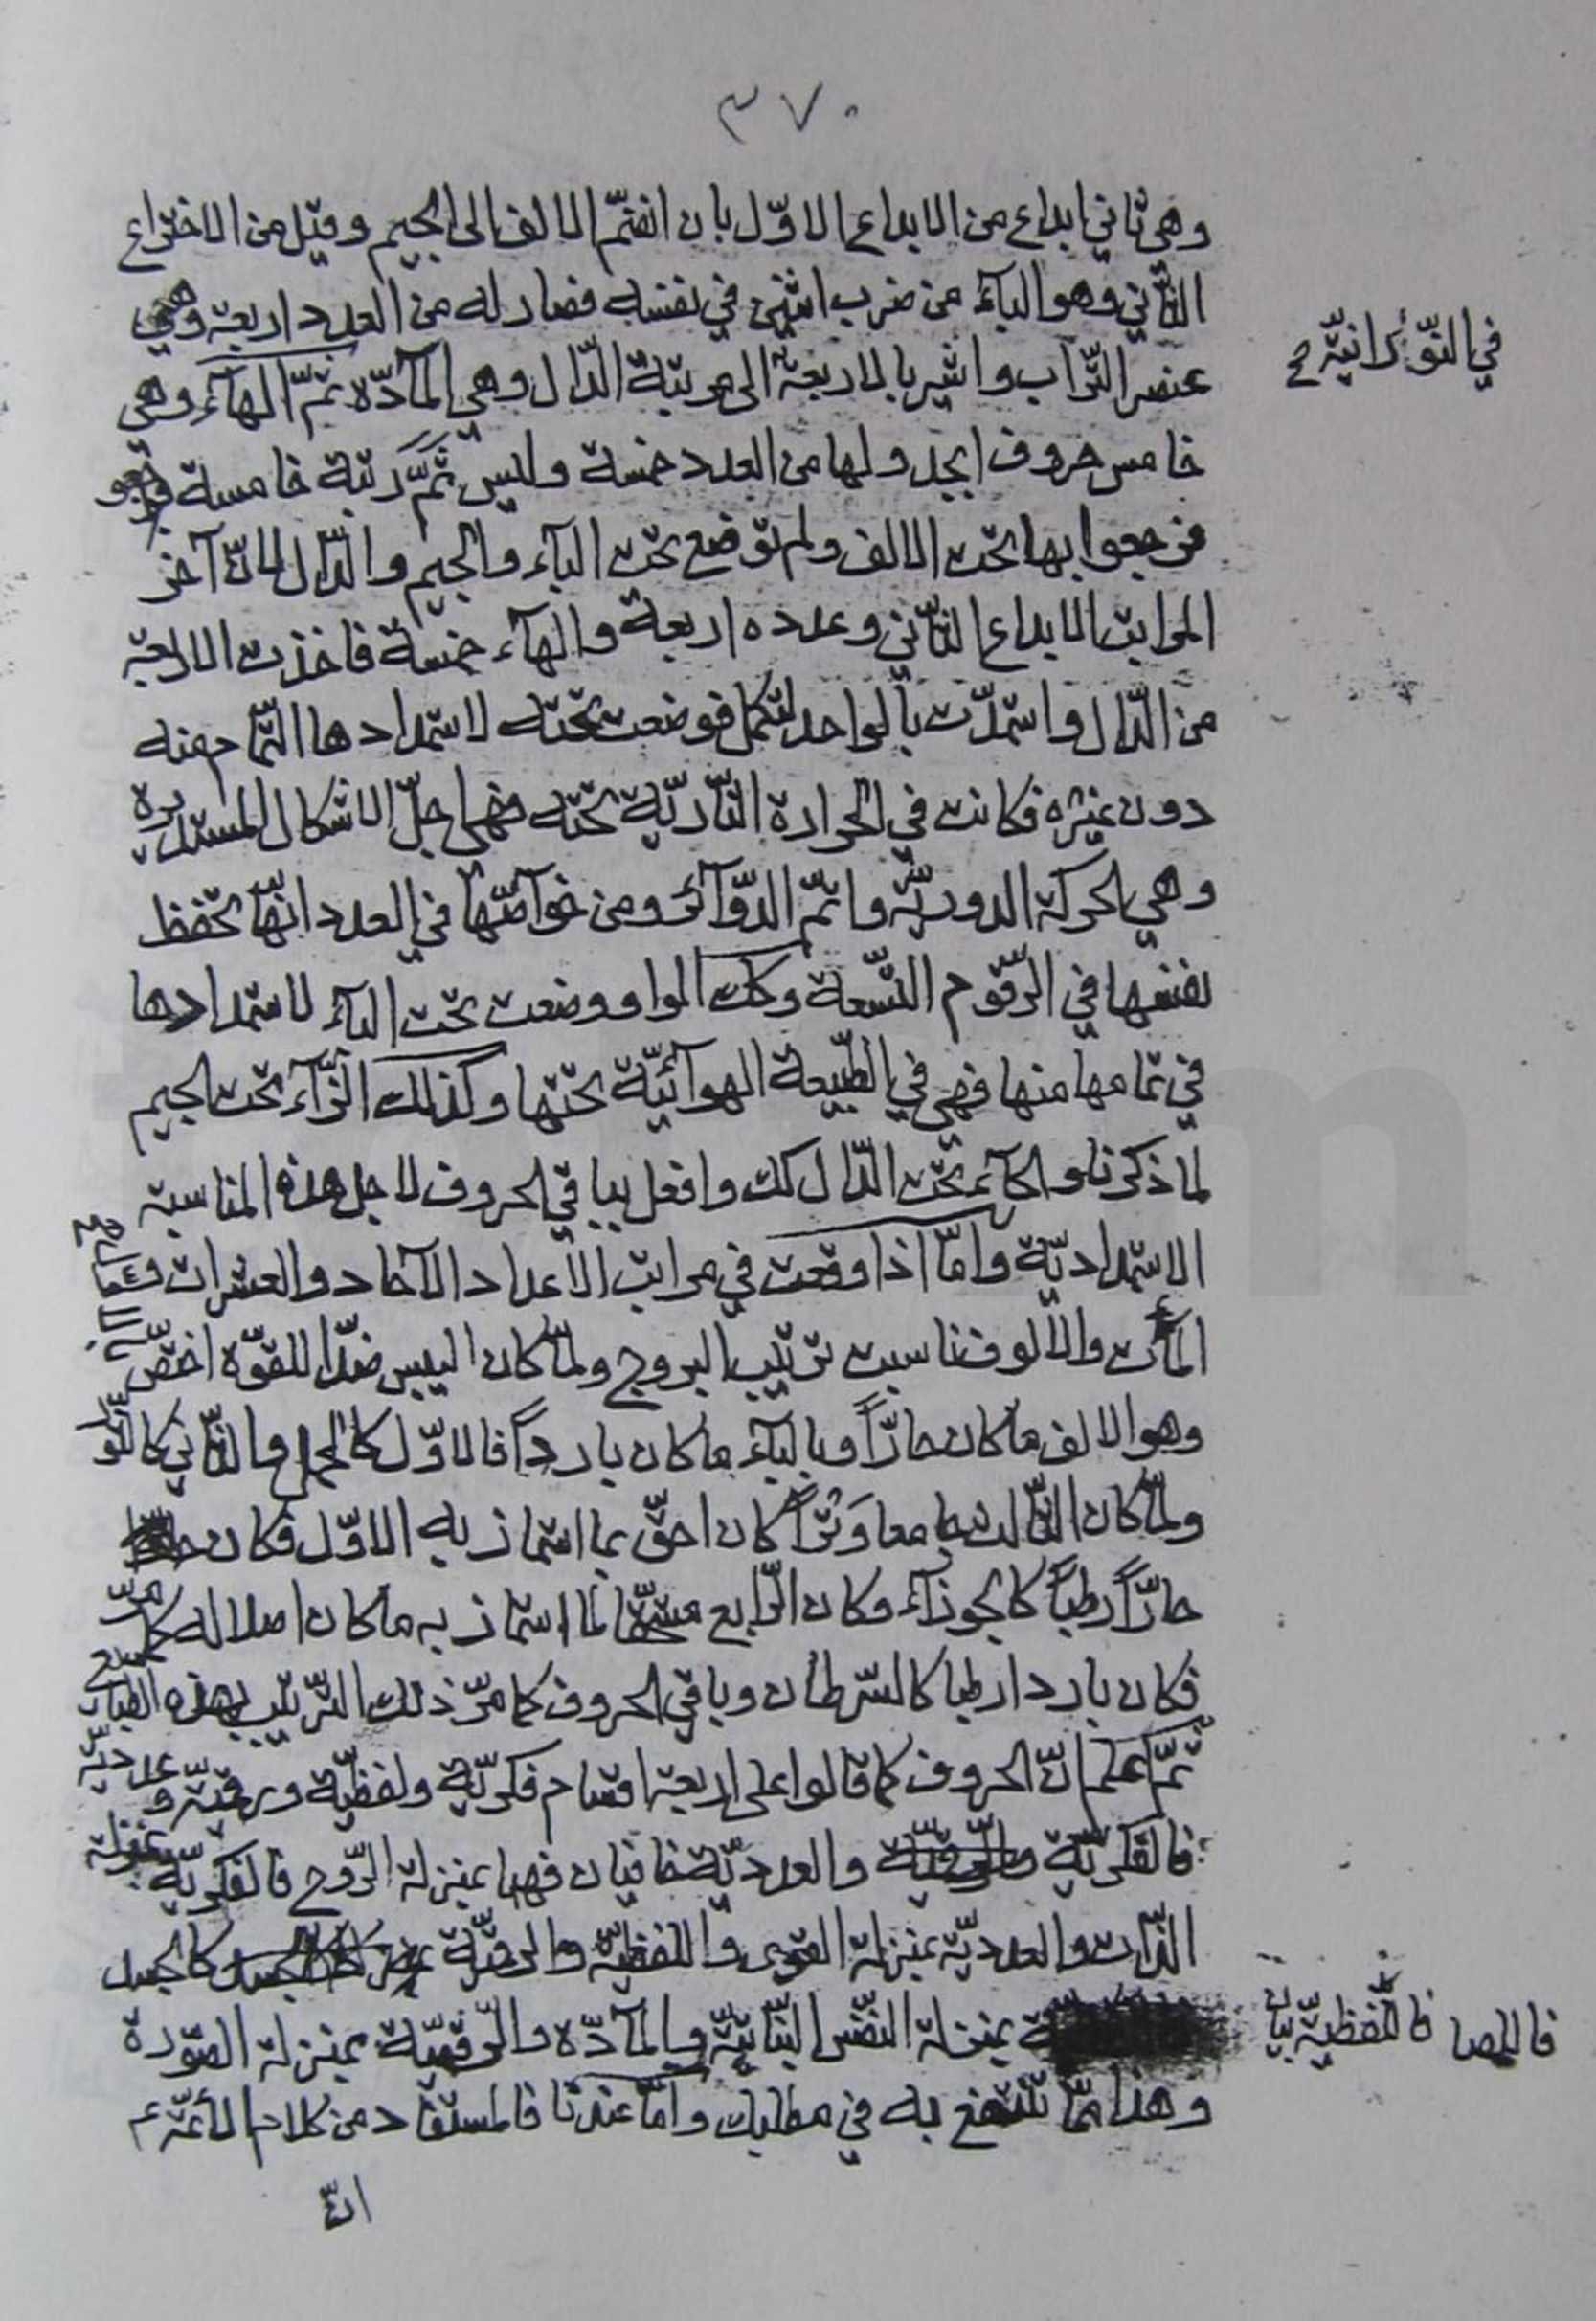 ٣٧٠
وهي ثاني ابداع من الابداع الاوّل بان انضمّ الالف الى الجيم وقيل من الاختراع
الثّاني وهو البآء من ضرب اثنين في نفسه فصار له من العدد اربعة وهي
في النّورانيّة
عنصر التّراب واشير بالاربعة الى مرتبة الدّال وهي المآدّة ثمّ الهآء وهي
خامس حروف ابجد ولها من العدد خمسة وليس ثمّ رتبة خامسة
فرجعوا بها تحت الالف ولم توضع تحت البآء والجيم والدّال لانّ آخر
المراتب الابداع الثّاني وعدده اربعة والهآء خمسة فاخذت الاربعة
من الدّال واستمدّت بالواحد لتكمل فوضعت تحته لاستمدادها التّمام منه
دون غيره فكانت في الحرارة النّاريّة تحته فهي اجلّ الاشكال المستديرة
وهي الحركة الدوريّة واتمّ الدّوآئر ومن خوآصّها في العدد انّها تحفظ
نفسها في الرّقوم التّسعة وكك الواو وضعت تحت البآء لاستمدادها
في تمامها منها فهي في الطّبيعة الهوآئيّة تحتها وكذلك الزّآء تحت الجيم
لما ذكرنا والحآء تحت الدّال كك وافعل بباقي الحروف لاجل هذه المناسبة
الاستمداديّة وامّا اذا وقعت في مراتب الأعداد الآحاد والعشرات و
المآت والالوف ناسبت ترتيب البروج ولمّا كان اليبس ضدّا للقوّة اختصّ
وهو الالف ما كان حارّاً وبالبآء ما كان بارداً فالاوّل كالحمل والثّاني كالثّور
ولمّا كان الثّالث وتراً كان احقّ بما استماز به الاوّل فكان
حارّاً رطباً كالجوزآء وكان الرّابع مستحقّا لما استماز به ما كان اصلا له كما مرّ
فكان باردا رطبا كالسّرطان وباقي الحروف كما مرّ ذلك التّرتيب بهذه الطبايع
ثمّ اعلم انّ الحروف كما قالوا على اربعة اقسام فكريّة ولفظيّة ورقميّة وعدديّة
فالفكريّة والعدديّة خافيان فهما بمنزلة الرّوح فالفكريّة بمنزلة
الذّات والعدديّة بمنزلة القوى واللفظيّة والرقميّة كالجسد
فاللفظيّة
بمنزلة النّفس النّباتيّة والمآدّة والرّقميّة بمنزلة الصّورة
وهذا ممّا تنتفع به في مطلبك وامّا عندنا فالمستفاد من كلام الأئمّة ع
انّ